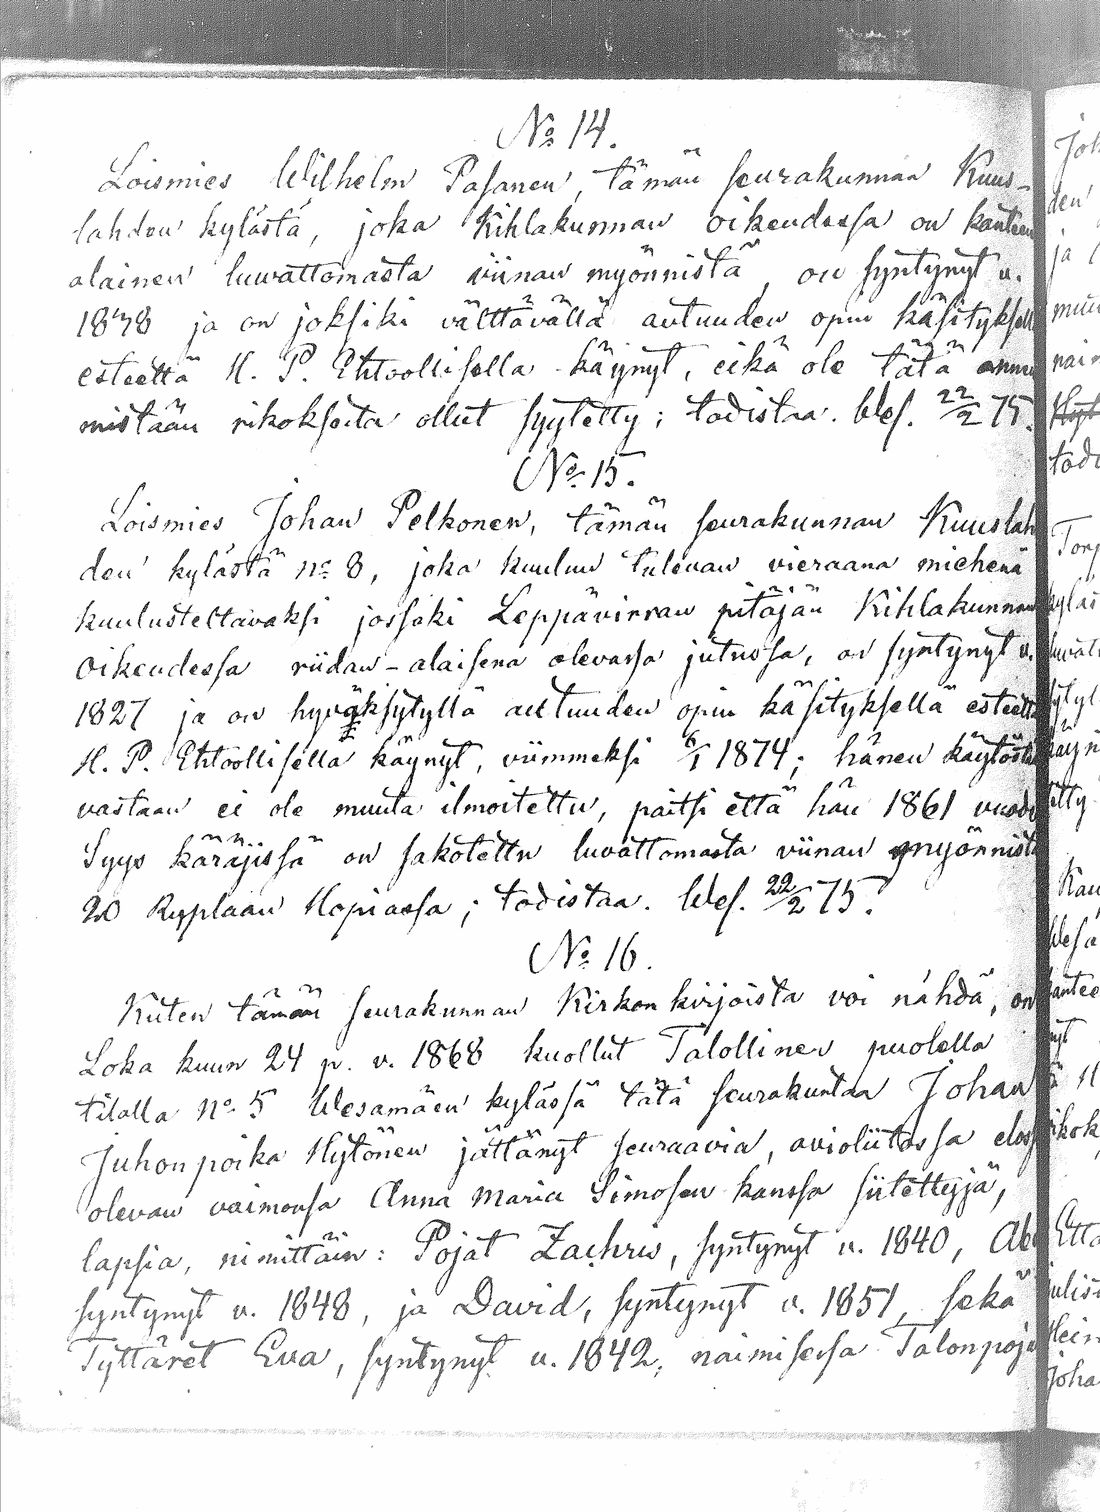 No 14.
Loismies Wilhelm Pasanen, tämän seurakunnan Kuus-
lahden kylästä, joka Kihlakunnan oikeudessa on kanteen
alainen luvattomasta viinan myönnistä, on syntynyt v.
1848 ja on joksiki välttävällä autuuden opin käsityksell
esteettä H. P. Ehtoollisella käynyt, eikä ole tätä ennen
mistään rikoksesta ollut syytetty; todistaa. Wes. 22/2 75.
No 15.
Loismies Johan Pelkonen, tämän seurakunnan Kuuslah
den kylästä No 8, joka kuuluu tulevan vieraana miehenä
kuulusteltavaksi jossaki Leppävirran pitäjän Kihlakunnan
oikeudessa riidan-alaisena olevassa jutussa, on syntynyt v.
1827 ja on hyväksytyllä autuuden opin käsityksellä esteettä
H. P. Ehtoollisella käynyt, viimmeksi 6/1 1874; hänen käytöstä
vastaan ei ole muuta ilmoitettu, paitsi että hän 1861 vuode
Syys käräjissä on sakotettu luvattomasta viinan myönnistä
20 Ruplaan Hopiassa; todistaa. Wes. 22/2 75.
No 16.
Kuten tämän seurakunnan Kirkon kirjoista voi nähdä, on
Loka kuun 24 p. v. 1868 kuollut Talollinen puolella
tilalla No 5 Wesamäen kylässä tätä seurakuntaa Johan
Juhonpoika Hytönen jättänyt seuraavia, avioliitossa eloss
olevan vaimonsa Anna Maria Simosen kanssa siitettyjä,
lapsia, nimittäin: Pojat Zachris, syntynyt v. 1840, Ab
syntynyt v. 1848, ja David, syntynyt v. 1851, sekä
Tyttäret Eva, syntynyt v. 1842, naimisessa Talonpoja